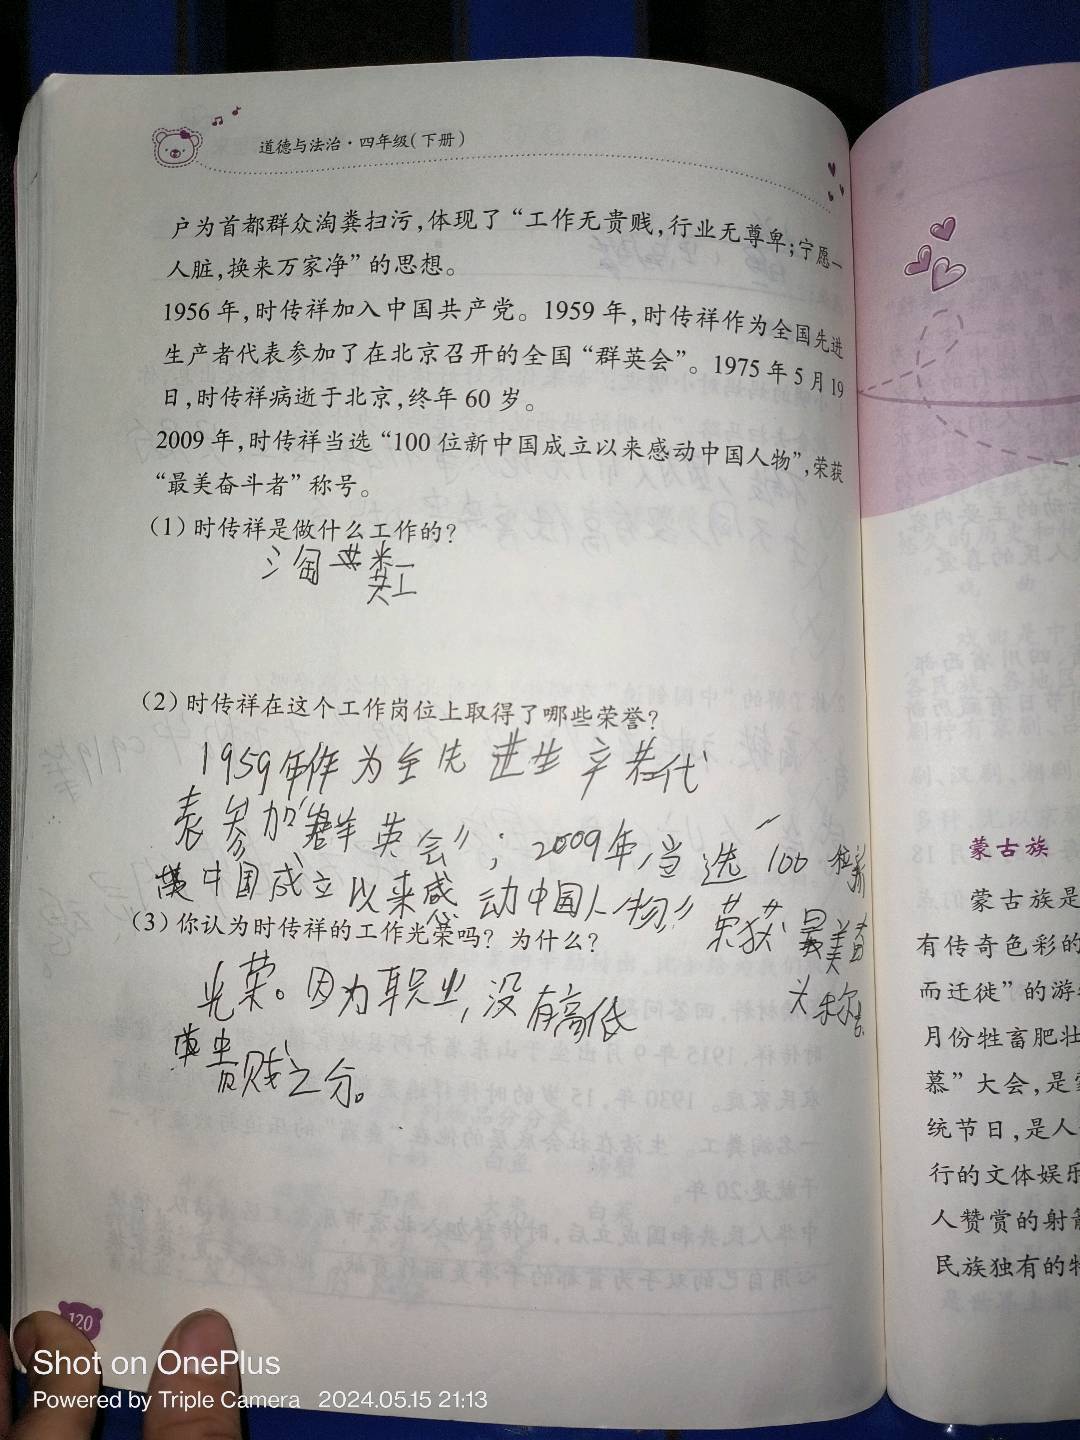 道德与法治·四年级(下册)
户为首都群众淘粪扫污,体现了“工作无贵贱,行业无尊卑;宁愿一
人脏,换来万家净”的思想。
1956年,时传祥加入中国共产党。1959年,时传祥作为全国先进
生产者代表参加了在北京召开的全国“群英会”。1975年5月19
日,时传祥病逝于北京,终年60岁。
2009年,时传祥当选“100位新中国成立以来感动中国人物”,荣获
“最美奋斗者”称号。
(1)时传祥是做什么工作的?
淘粪工
(2)时传祥在这个工作岗位上取得了哪些荣誉?
1959年作为全先进生产者代
表参加“群英会”;2009年,当选“100位新
中国成立以来感动中国人物”荣获最美奋
称号
(3)你认为时传祥的工作光荣吗?为什么?
光荣。因为职业,没有高低
贵贱之分。
120
蒙古族
蒙古族是
有传奇色彩的
而迁徙”的游
月份牲畜肥壮
慕”大会,是
统节日,是人
行的文体娱乐
人赞赏的射箭
民族独有的特
Shot on OnePlus
Powered by Triple Camera 2024.05.15 21:13